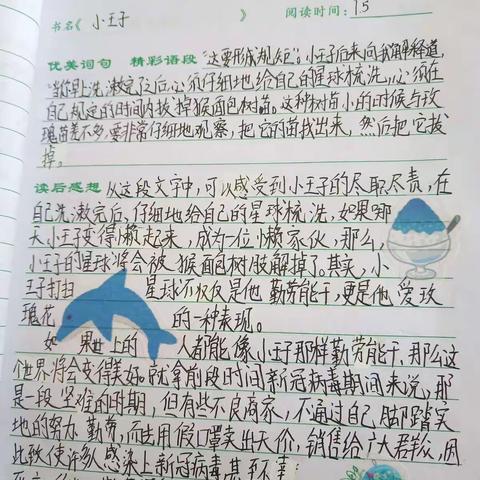 书名《 小王子 》 阅读时间: 7.5
优美词句 精彩语段 "这要形成规矩"。小王子后来向我解释道,
当你早上洗漱完了后必须仔细地给自己的星球梳洗,必须在
自己规定的时间内拔掉猴面包树苗。这种树苗小的时候与玫
瑰苗差不多,要非常仔细地观察,把它的苗找出来,然后把它拔
掉。
读后感想 从这段文字中,可以感受到小王子的尽职尽责,在
自己洗漱完后、仔细地给自己的星球梳洗,如果那
天小王子变得懒起来,成为一位懒家伙,那么,
小王子的星球将会被猴面包树肢解掉了。其实,小
王子打扫 星球不仅仅是他勤劳能干,更是他爱玫
瑰花 的一种表现。
如 果世上的 人都能像小王子那样勤劳能干、那么这
个世界将会变得美好。就拿前段时间新冠病毒期间来说,那
是一段坚难的时期,但有些不良商家,不通过自己脚踏实
地的努力、勤劳,而去用假口罩卖出天价,销售给广大群众,因
此致使许多人感染上新冠病毒甚至不幸